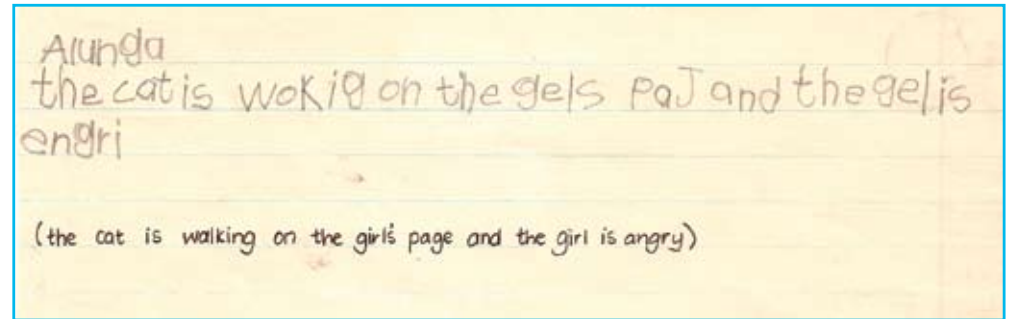 Alunga
the cat is wokig on the gels paJ and the gel is
engri
(the cat is walking on the girl's page and the girl is angry)